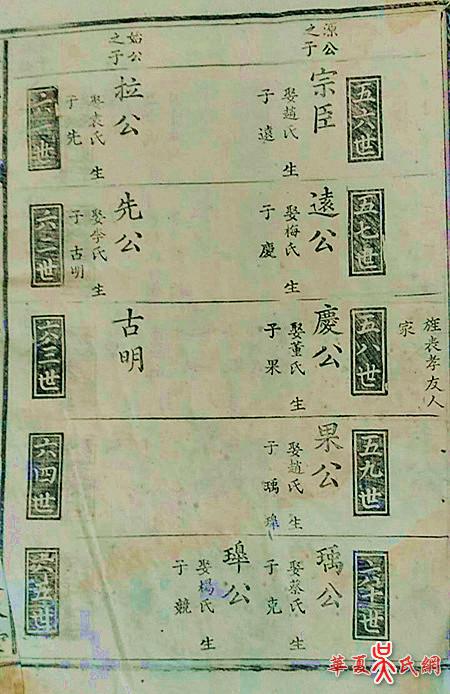 五六世
源公
之子
宗臣
娶趙氏 生
子 遠
五七世
遠公
娶梅氏 生
子 慶
旌表孝友人
家
五八世
慶公
娶董氏 生
子 果
五九世
果公
娶趙氏 生
子 瑀
六十世
瑀公
娶蔡氏 生
子 克
公
娶楊氏 生
子 競
始公
之子
拉公
娶袁氏 生
子 先
世
先公
娶李氏 生
子 古明
六二世
古明
六三世
六四世
六五世
華夏吳氏網